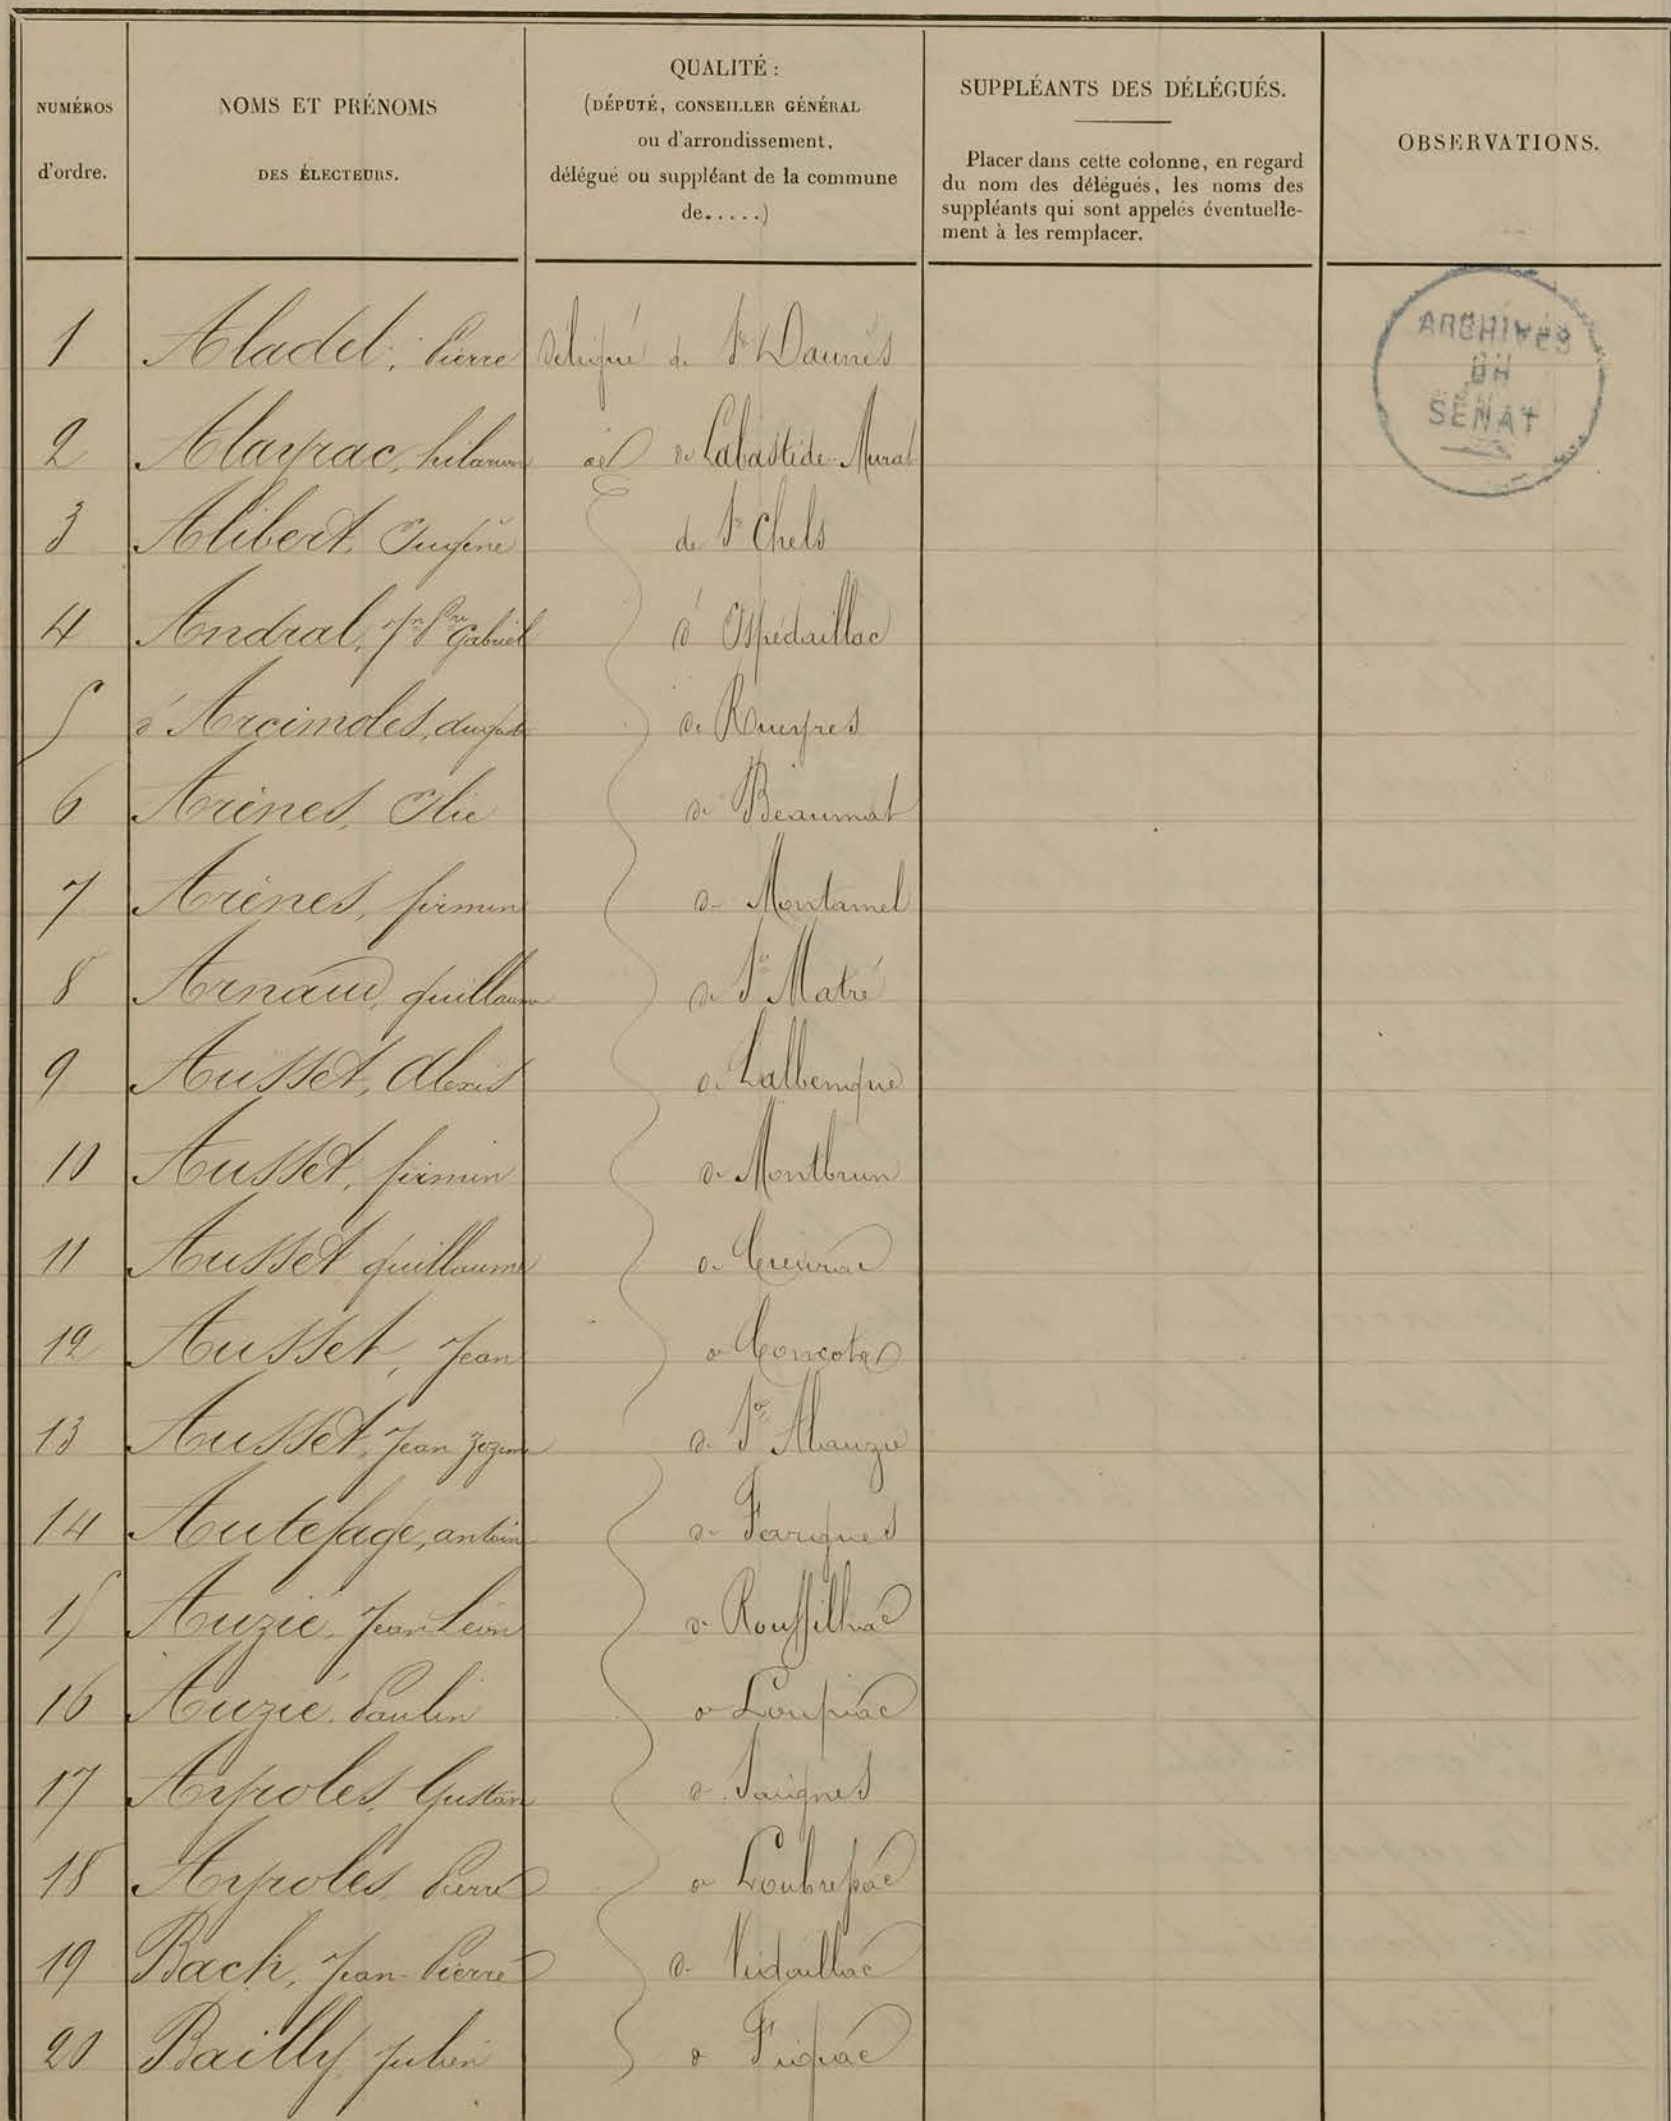 NUMÉROS
d'ordre.
NOMS ET PRÉNOMS
DES ÉLECTEURS.
QUALITÉ :
(DÉPUTÉ, CONSEILLER GÉNÉRAL
ou d'arrondissement,
délégué ou suppléant de la commune
de.....)
SUPPLÉANTS DES DÉLÉGUÉS.
Placer dans cette colonne, en regard
du nom des délégués, les noms des
suppléants qui sont appelés éventuelle-
ment à les remplacer.
OBSERVATIONS.
ARCHIVES
DU
SENAT
1 Aladel, Pierre délégué de St Daunès
2 Alayrac, hilarion id de Labastide-Murat
3 Alibert, Eugène de St Chels
4 Andral, Jn Pre Gabriel d'Espédaillac
5 d'Arcimoles, de Rueyres
6 Arènes, Elie de Beaumat
7 Arènes, firmin de Montamel
8 Arnaud, guillaume de St Matré
9 Ausset, Alexis de Lalbenque
10 Ausset, firmin de Montbrun
11 Ausset guillaume de Crayssac
12 Ausset, Jean de Concots
13 Ausset, Jean Zozime de St Alauzie
14 Autefage, antoine de Fargues
15 Auzié, Jean Léon de Rouffilhac
16 Auzié, Paulin de Loupiac
17 Ayroles, Gustave de Saignes
18 Ayroles, Pierre de Loubressac
19 Bach, Jean-Pierre de Vidaillac
20 Bailly Julien de Figeac